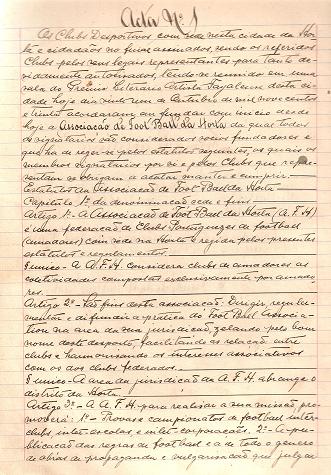 Acta Nº 1
Os Clubs Desportivos com séde nesta cidade da Hor-
ta e cidadãos no fim assinados, sendo os referidos
Clubs pelos seus legais representantes para tanto de-
vidamente autorisados, tendo-se reunido em uma
sala do Gremio Literario Artista Fayalense desta ci-
dade hoje dia vinte e um de Outubro de mil nove centos
e trinta acordaram em fundar com inicio desde
hoje a Associação de Foot Ball da Horta da qual todos
os signatarios são considerados socios fundadores e
que ha de reger-se pelos estatutos seguintes, os quais os
membros signatarios por si e pelos Clubs que repre-
sentam se obrigam a acatar manter e cumprir.
Estatutos da Associação de Foot Ball da Horta
Capitulo 1º da denominação séde e fins
Artigo 1º - A Associação de Foot Ball da Horta (A. F. H)
é uma federação de Clubs Portuguezes de football
(amadores) com séde na Horta e regida pelos presentes
estatutos e regulamentos.
§ unico - A A. F. H. considera clubs de amadores as
colectividades compostas exclusivamente por amado-
res.
Artigo 2º - São fins desta associação: Dirigir, regula-
mentar e difundir a prática do Foot Ball Associa-
tion na area da sua jurisdição, zelando pelo bom
nome deste desporto, facilitando as relações entre
clubs e harmonisando os interesses associativos
com os dos clubs federados.
§ unico - A area da jurisdição da A. F. H. abrange o
distrito da Horta.
Artigo 3º - A A. F. H. para realisar a sua missão, pro-
moverá: 1º - Provas e campionatos de football inter-
clubs, inter-escolas e inter-corporações. 2º - A pu-
blicação das regras de football e a de todo o genero
de obras de propaganda e vulgarisação que julgar